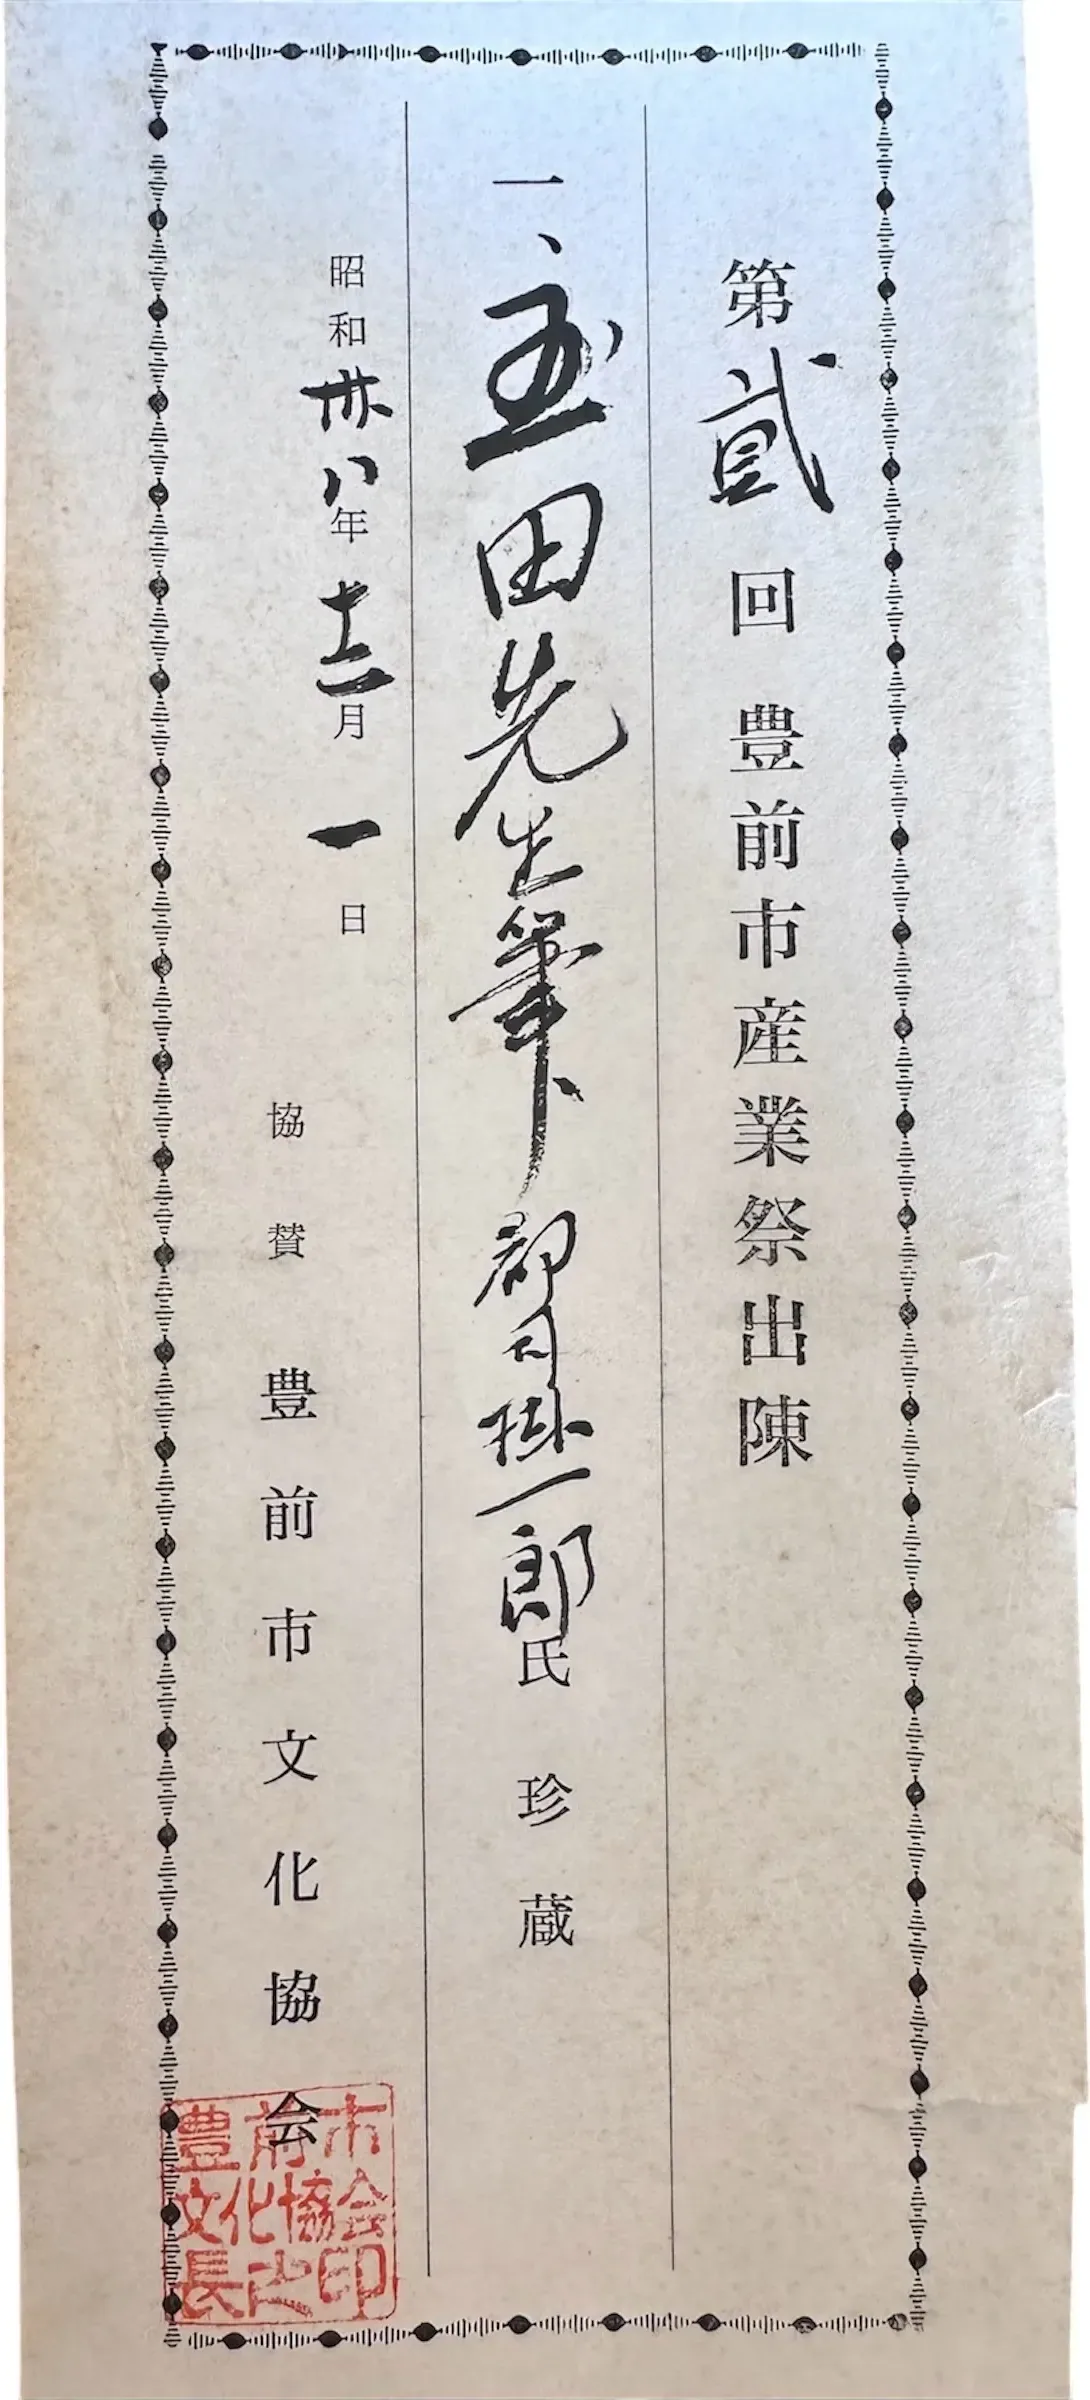 第貳回豊前市産業祭出陳
一、玉田先生筆 一郎氏珍蔵
昭和卅八年十二月一日
協賛 豊前市文化協会
豊前市
文化協会
長之印